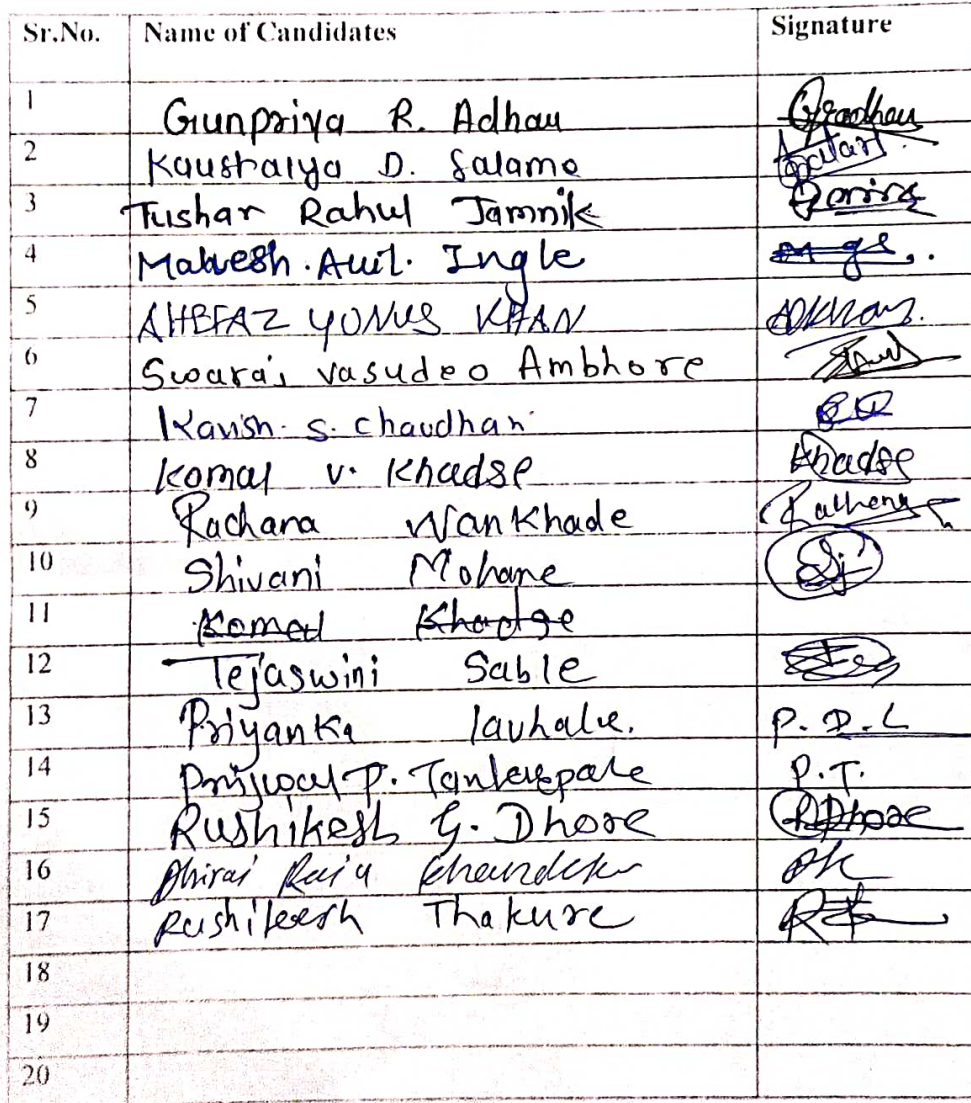 Sr.No. Name of Candidates Signature
1 Gunpriya R. Adhau
2 Kaushalya D. Salame
3 Tushar Rahul Jamnik
4 Mahesh. Anil. Ingle
5 AHEFAZ YONUS KHAN
6 Swaraj Vasudeo Ambhore
7 Kavish. S. Chaudhari
8 Komal V. Khadse Khadse
9 Rachana Wankhade
10 Shivani Mohane
11 Komal Khadse
12 Tejaswini Sable
13 Priyanka lavhale. P.D.L
14 P. P.T.
15 Rushikesh G. Dhore RDhore
16 Dhiraj Raju DK
17 Rushikesh Thakure
18
19
20